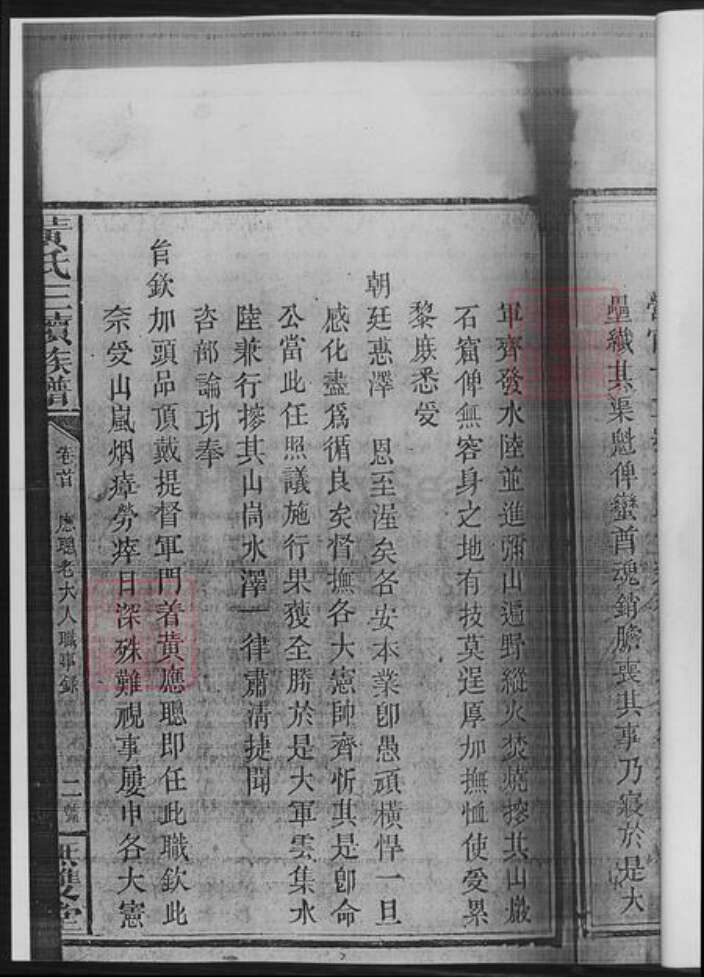 壘纖其渠魁俾蠻酋魂銷膽喪其事乃寢於是大
軍齊發水陸並進彌山遍野縱火焚燒搜其山嚴
石窟俾無容身之地有技莫逞厚加撫恤使受累
黎庶悉受
朝廷惠澤 恩至渥矣各安本業卽愚頑橫悍一旦
感化盡爲循良矣督撫各大憲帥齊忻其是卽命
公當此任照議施行果獲全勝於是大軍雲集水
陸兼行搜其山崗水澤一律肅淸捷聞
咨部論功奉
旨欽加頭品頂戴提督軍門着黃應聰即任此職欽此
奈受山嵐烟瘴勞瘁日深殊難視事屢申各大憲
黃氏三續族譜 卷首 應聰老大人職事錄 二 無雙堂